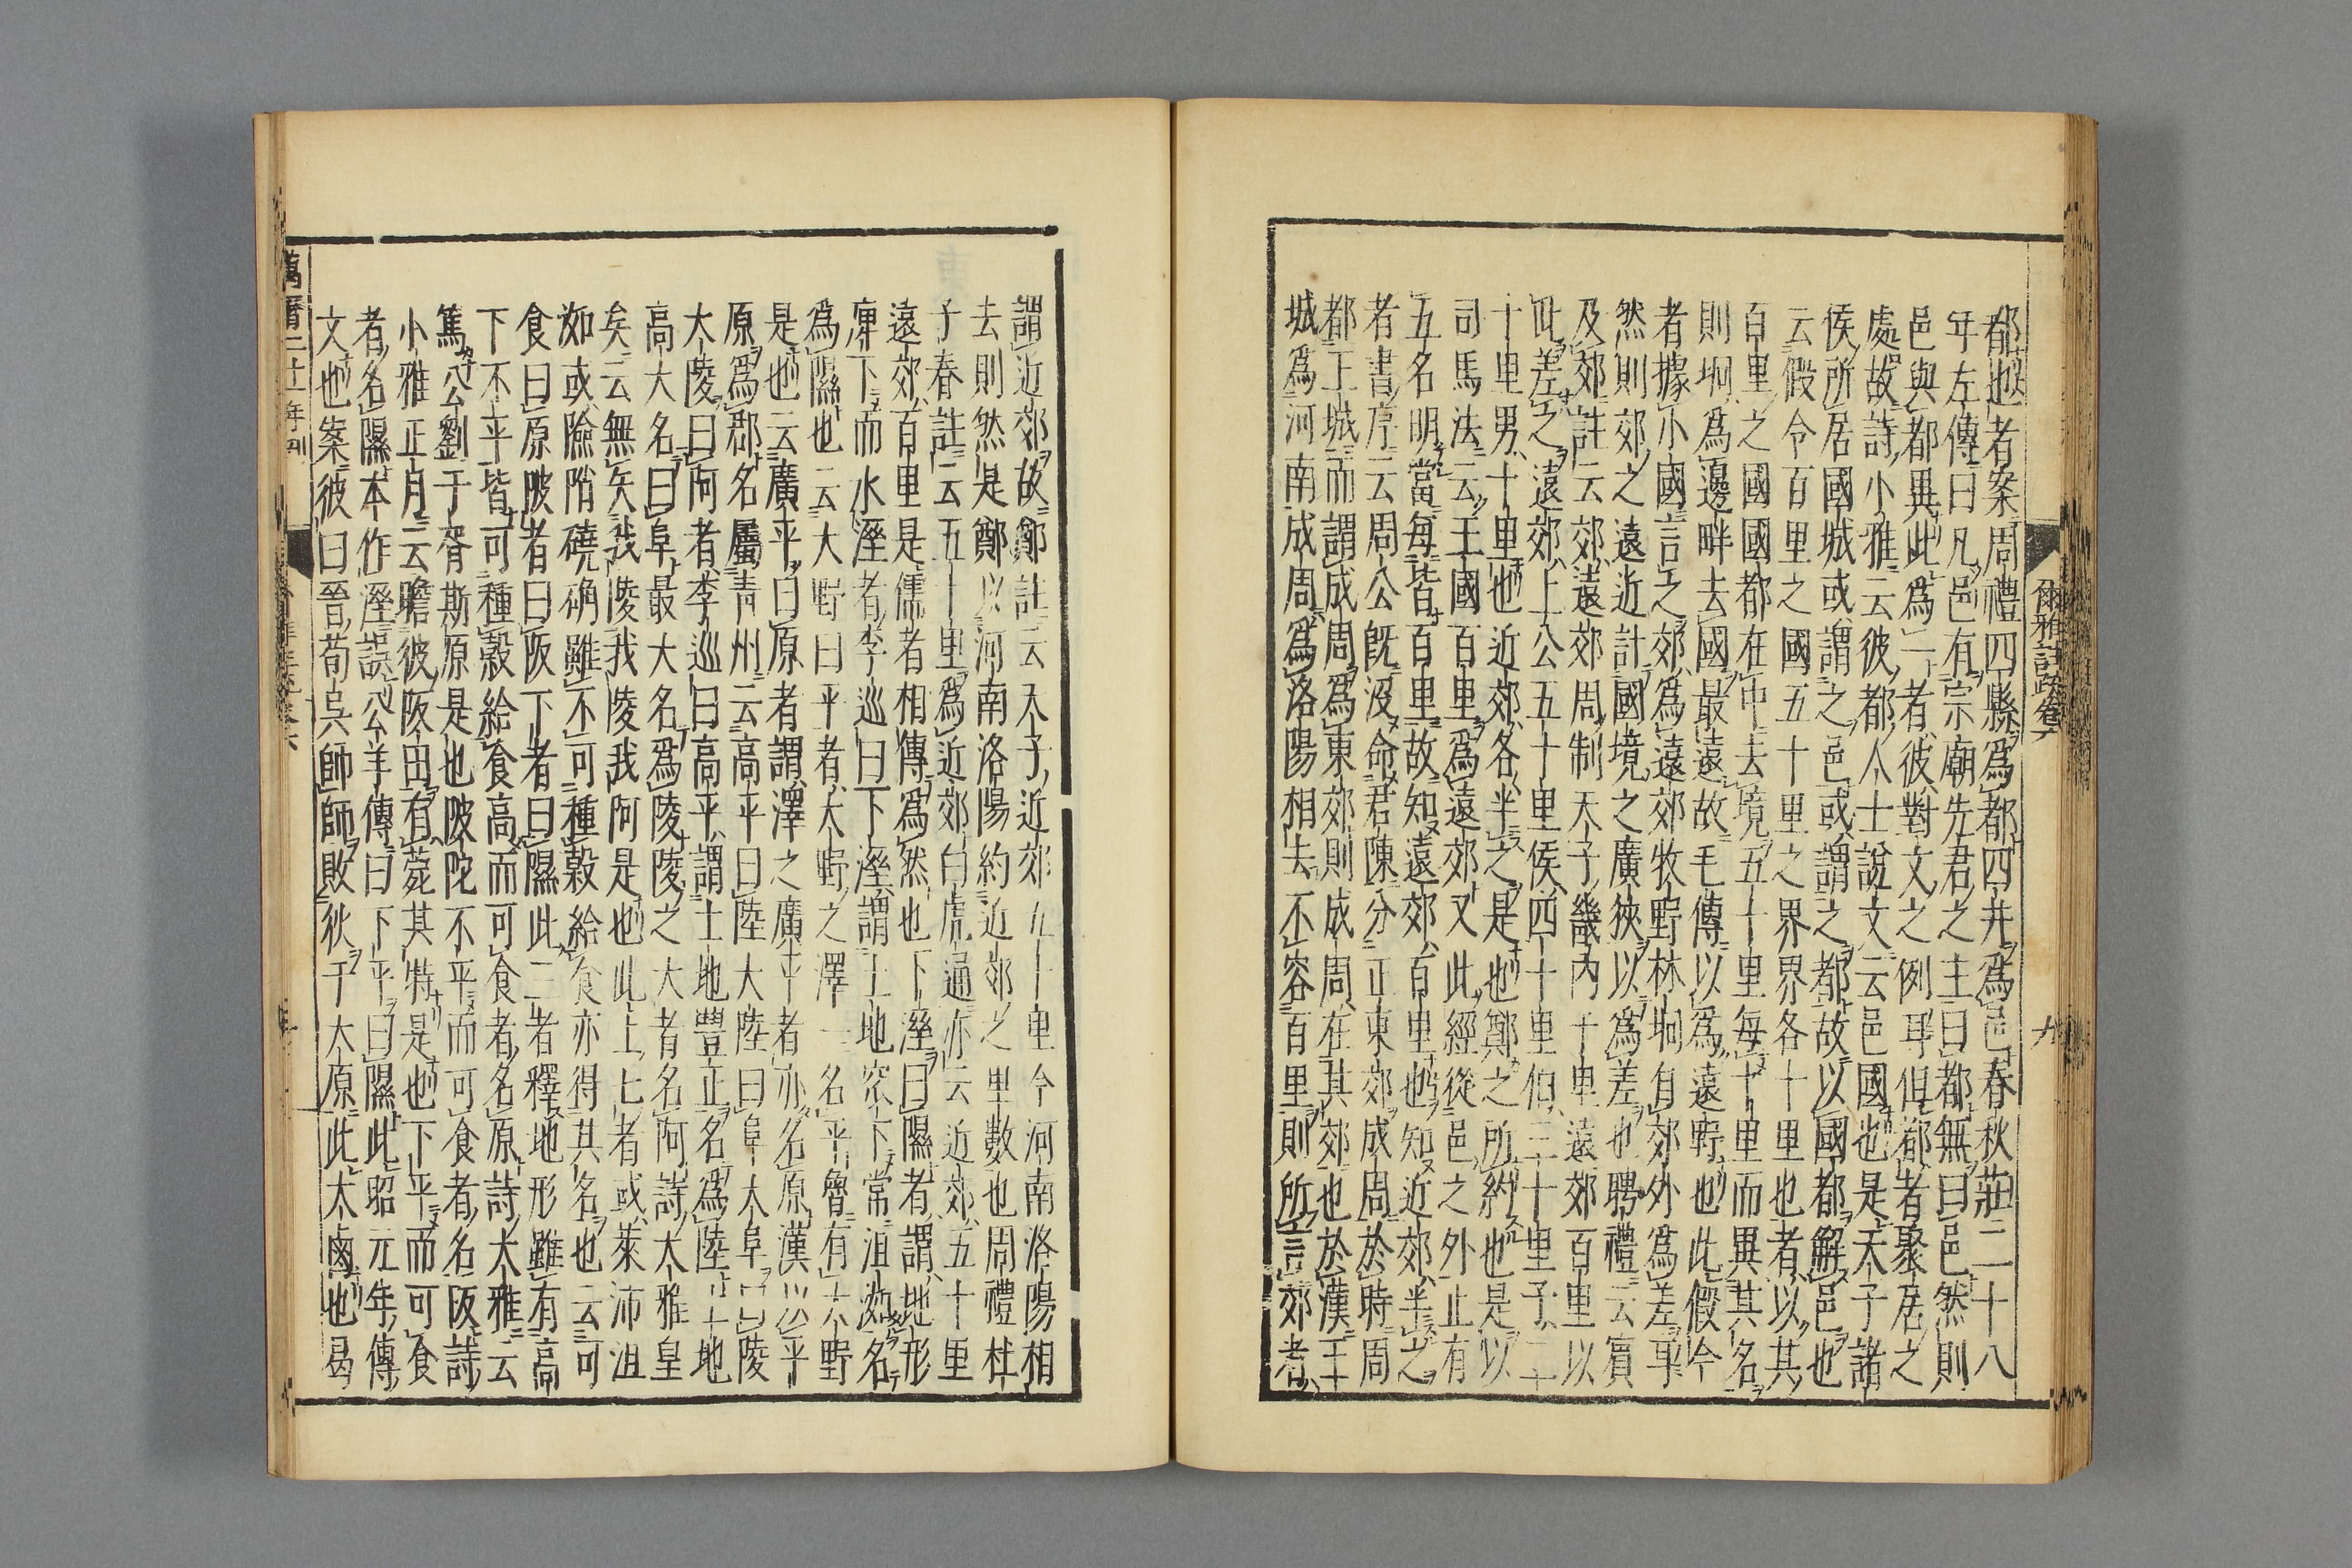 爾雅註疏卷六
九
都也者案周禮四縣爲都四井爲邑春秋莊二十八
年左傳曰凡邑有宗廟先君之主曰都無曰邑然則
邑與都異此爲一者彼對文之例耳但都者聚居之
處故詩小雅云彼都人士說文云邑國也是天子諸
侯所居國城或謂之邑或謂之都故以國都解邑也
云假令百里之國五十里之界界各十里也者以其
百里之國國都在中去境五十里每十里而異其名
則坰爲邊畔去國最遠故毛傳以爲遠野也此假令
者據小國言之郊爲遠郊牧野林坰自郊外爲差耳
然則郊之遠近計國境之廣狹以爲差也聘禮云賓
及郊註云郊遠郊周制天子畿內千里遠郊百里以
此差之遠郊上公五十里侯四十里伯三十里子二
十里男十里也近郊各半之是也鄭之所約也是以
司馬法云王國百里爲遠郊又此經從邑之外止有
五名明當每皆百里故知遠郊百里也知近郊半之
者書序云周公旣沒命君陳分正東郊成周於時周
都王城而謂成周爲東郊則成周在其郊也於漢王
城爲河南成周爲洛陽相去不容百里則所言郊者
謂近郊故鄭註云天子近郊五十里今河南洛陽相
去則然是鄭以河南洛陽約近郊之里數也周禮杜
子春註云五十里爲近郊白虎通亦云近郊五十里
遠郊百里是儒者相傳爲然也下溼曰隰者謂地形
庳下而水溼者李巡曰下溼謂土地窊下常沮洳名
爲隰也云大野曰平者大野之澤一名平魯有大野
是也云廣平曰原者謂澤之廣平者亦名原漢以平
原爲郡名屬青州云高平曰陸大陸曰阜大阜曰陵
大陵曰阿者李巡曰高平謂土地豐正名爲陸土地
高大名曰阜最大名爲陵陵之大者名阿詩大雅皇
矣云無矢我陵我陵我阿是也此上七者或萊沛沮
洳或險陗磽确雖不可種穀給食亦得其名也云可
食曰原陂者曰阪下者曰隰此三者釋地形雖有高
下不平皆可種穀給食高而可食者名原詩大雅云
篤公劉于胥斯原是也陂陀不平而可食者名阪詩
小雅正月云瞻彼阪田有菀其特是也下平而可食
者名隰本作溼誤公羊傳曰下平曰隰此昭元年傳
文也案彼曰晉荀吳師師敗狄于大原此大鹵也曷
萬曆二十一年刊